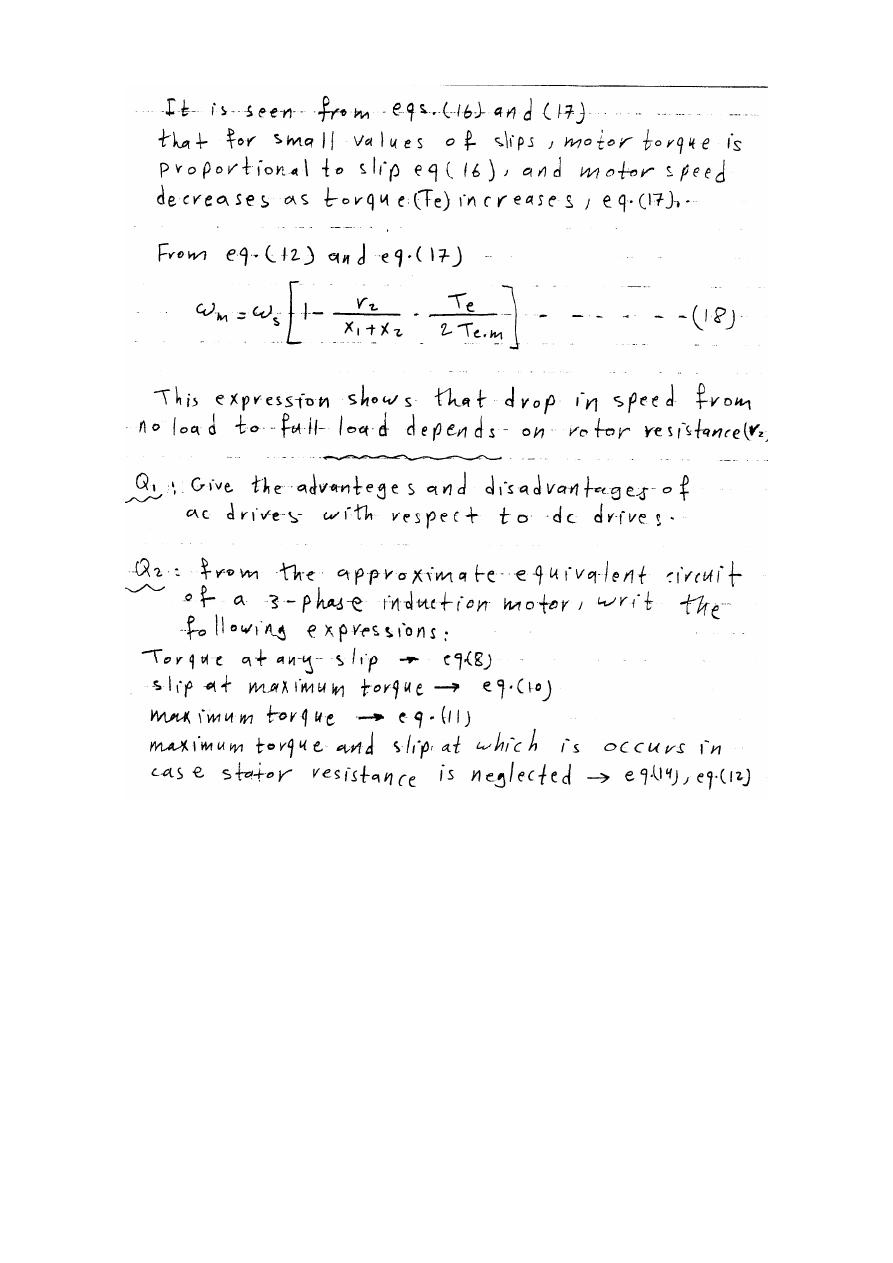 It is seen from eqs.(16) and (17)
that for small values of slips, motor torque is
proportional to slip eq(16), and motor speed
decreases as torque(Te) increases, eq.(17).
From eq.(12) and eq.(17)
ωm = ωs [1 - r2/(x1+x2) · Te/(2 Te.m)] - - - - - - -(18)
This expression shows that drop in speed from
no load to full load depends on rotor resistance(r2
Q1: Give the advanteges and disadvantages of
ac drives with respect to dc drives.
Q2: from the approximate equivalent circuit
of a 3-phase induction motor, writ the
following expressions:
Torque at any slip → eq(8)
slip at maximum torque → eq.(10)
maximum torque → eq.(11)
maximum torque and slip at which is occurs in
case stator resistance is neglected → eq.(14), eq.(12)